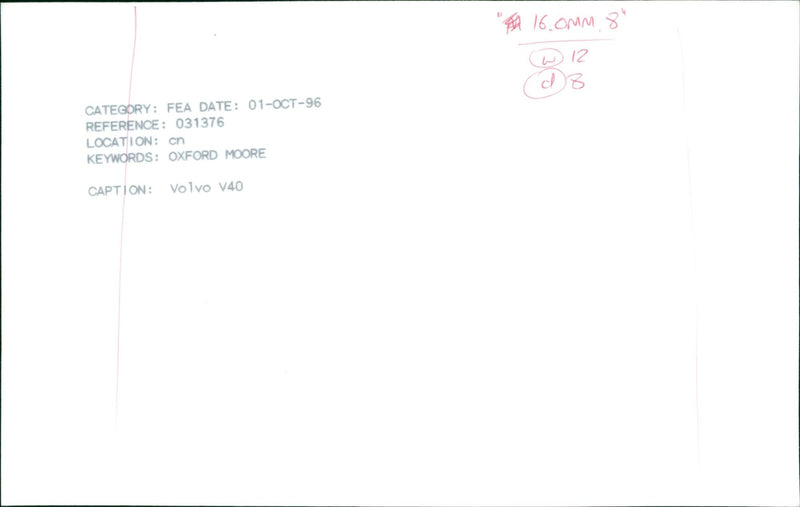 " 16.0MM.8"
w 12
d 8
CATEGORY: FEA DATE: 01-OCT-96
REFERENCE: 031376
LOCATION: cn
KEYWORDS: OXFORD MOORE
CAPTION: Volvo V40